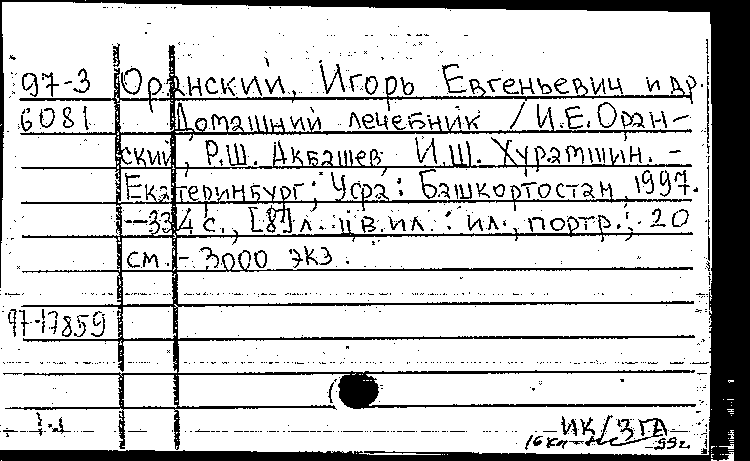 97-3 Оранский, Игорь Евгеньевич и др.
6081 Домашний лечебник / И.Е. Оран-
ский, Р.Ш. Акбашев, И.Ш. Хурамшин. -
Екатеринбург; Уфа: Башкортостан, 1997.
- 334 с., [8] л. цв. ил. : ил., портр.; 20
см. - 3000 экз.
97-17859
ИК/ЗГА
99г.